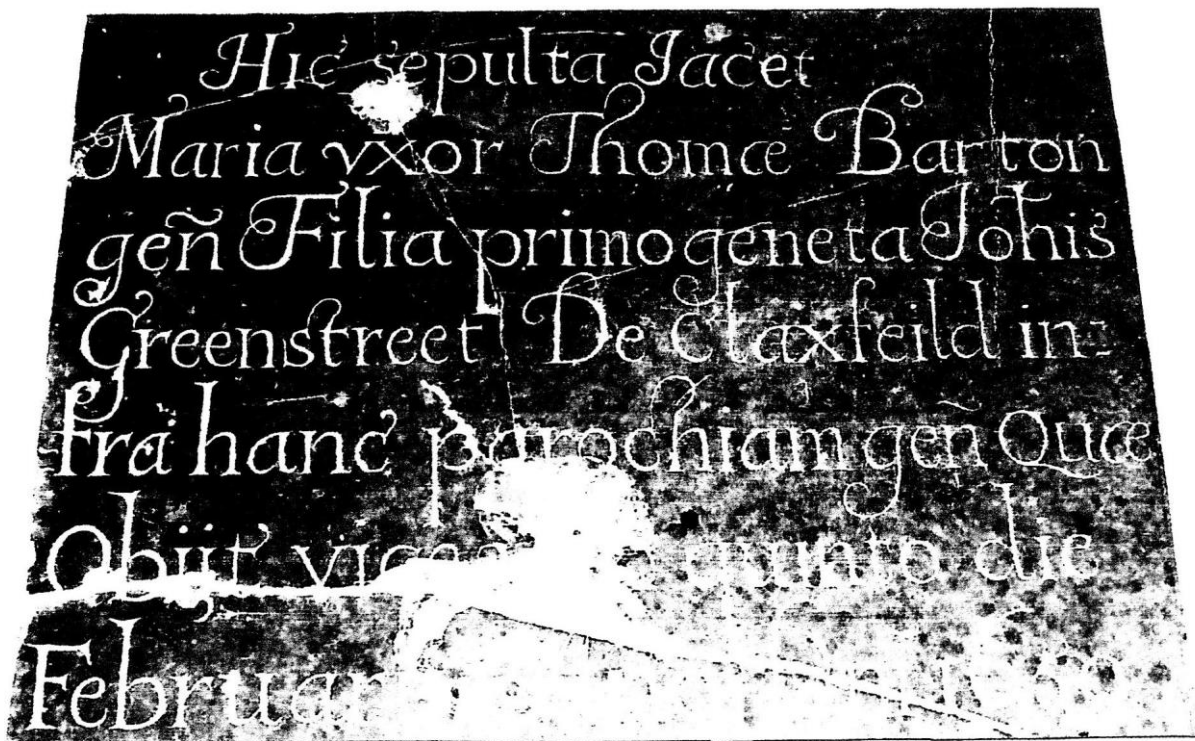 Hic sepulta Jacet
Maria vxor Thomæ Barton
geñ Filia primogeneta Johis
Greenstreet De Claxfeild in=
fra hanc parochiam geñ Quæ
Obijt quinto die